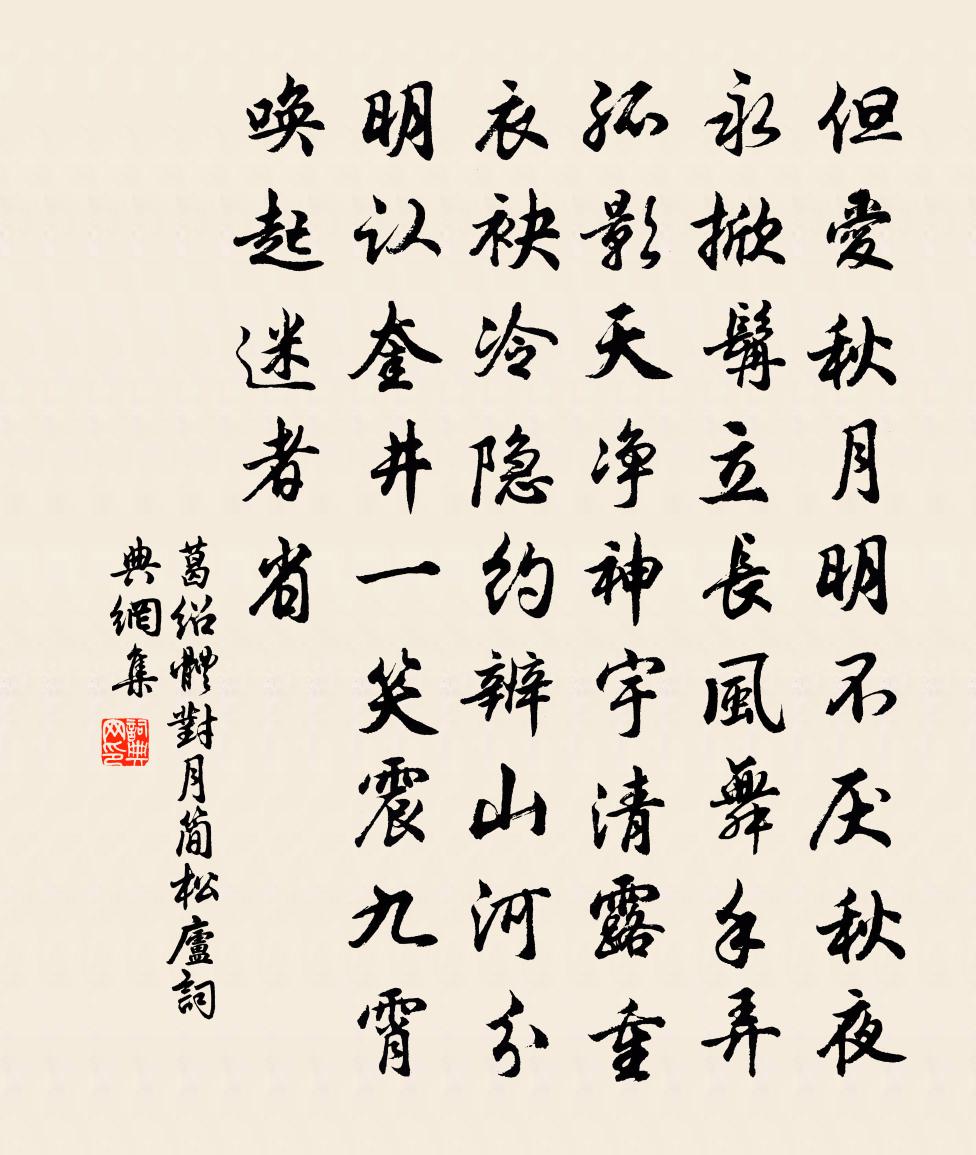 但愛秋月明不厌秋夜
永掀髯立長風舞手弄
孤影天净神宇清露重
衣袂冷隐約辨山河分
明认奎井一笑震九霄
喚起迷者省
葛绍體對月简松廬詞
典網集
詞典網印